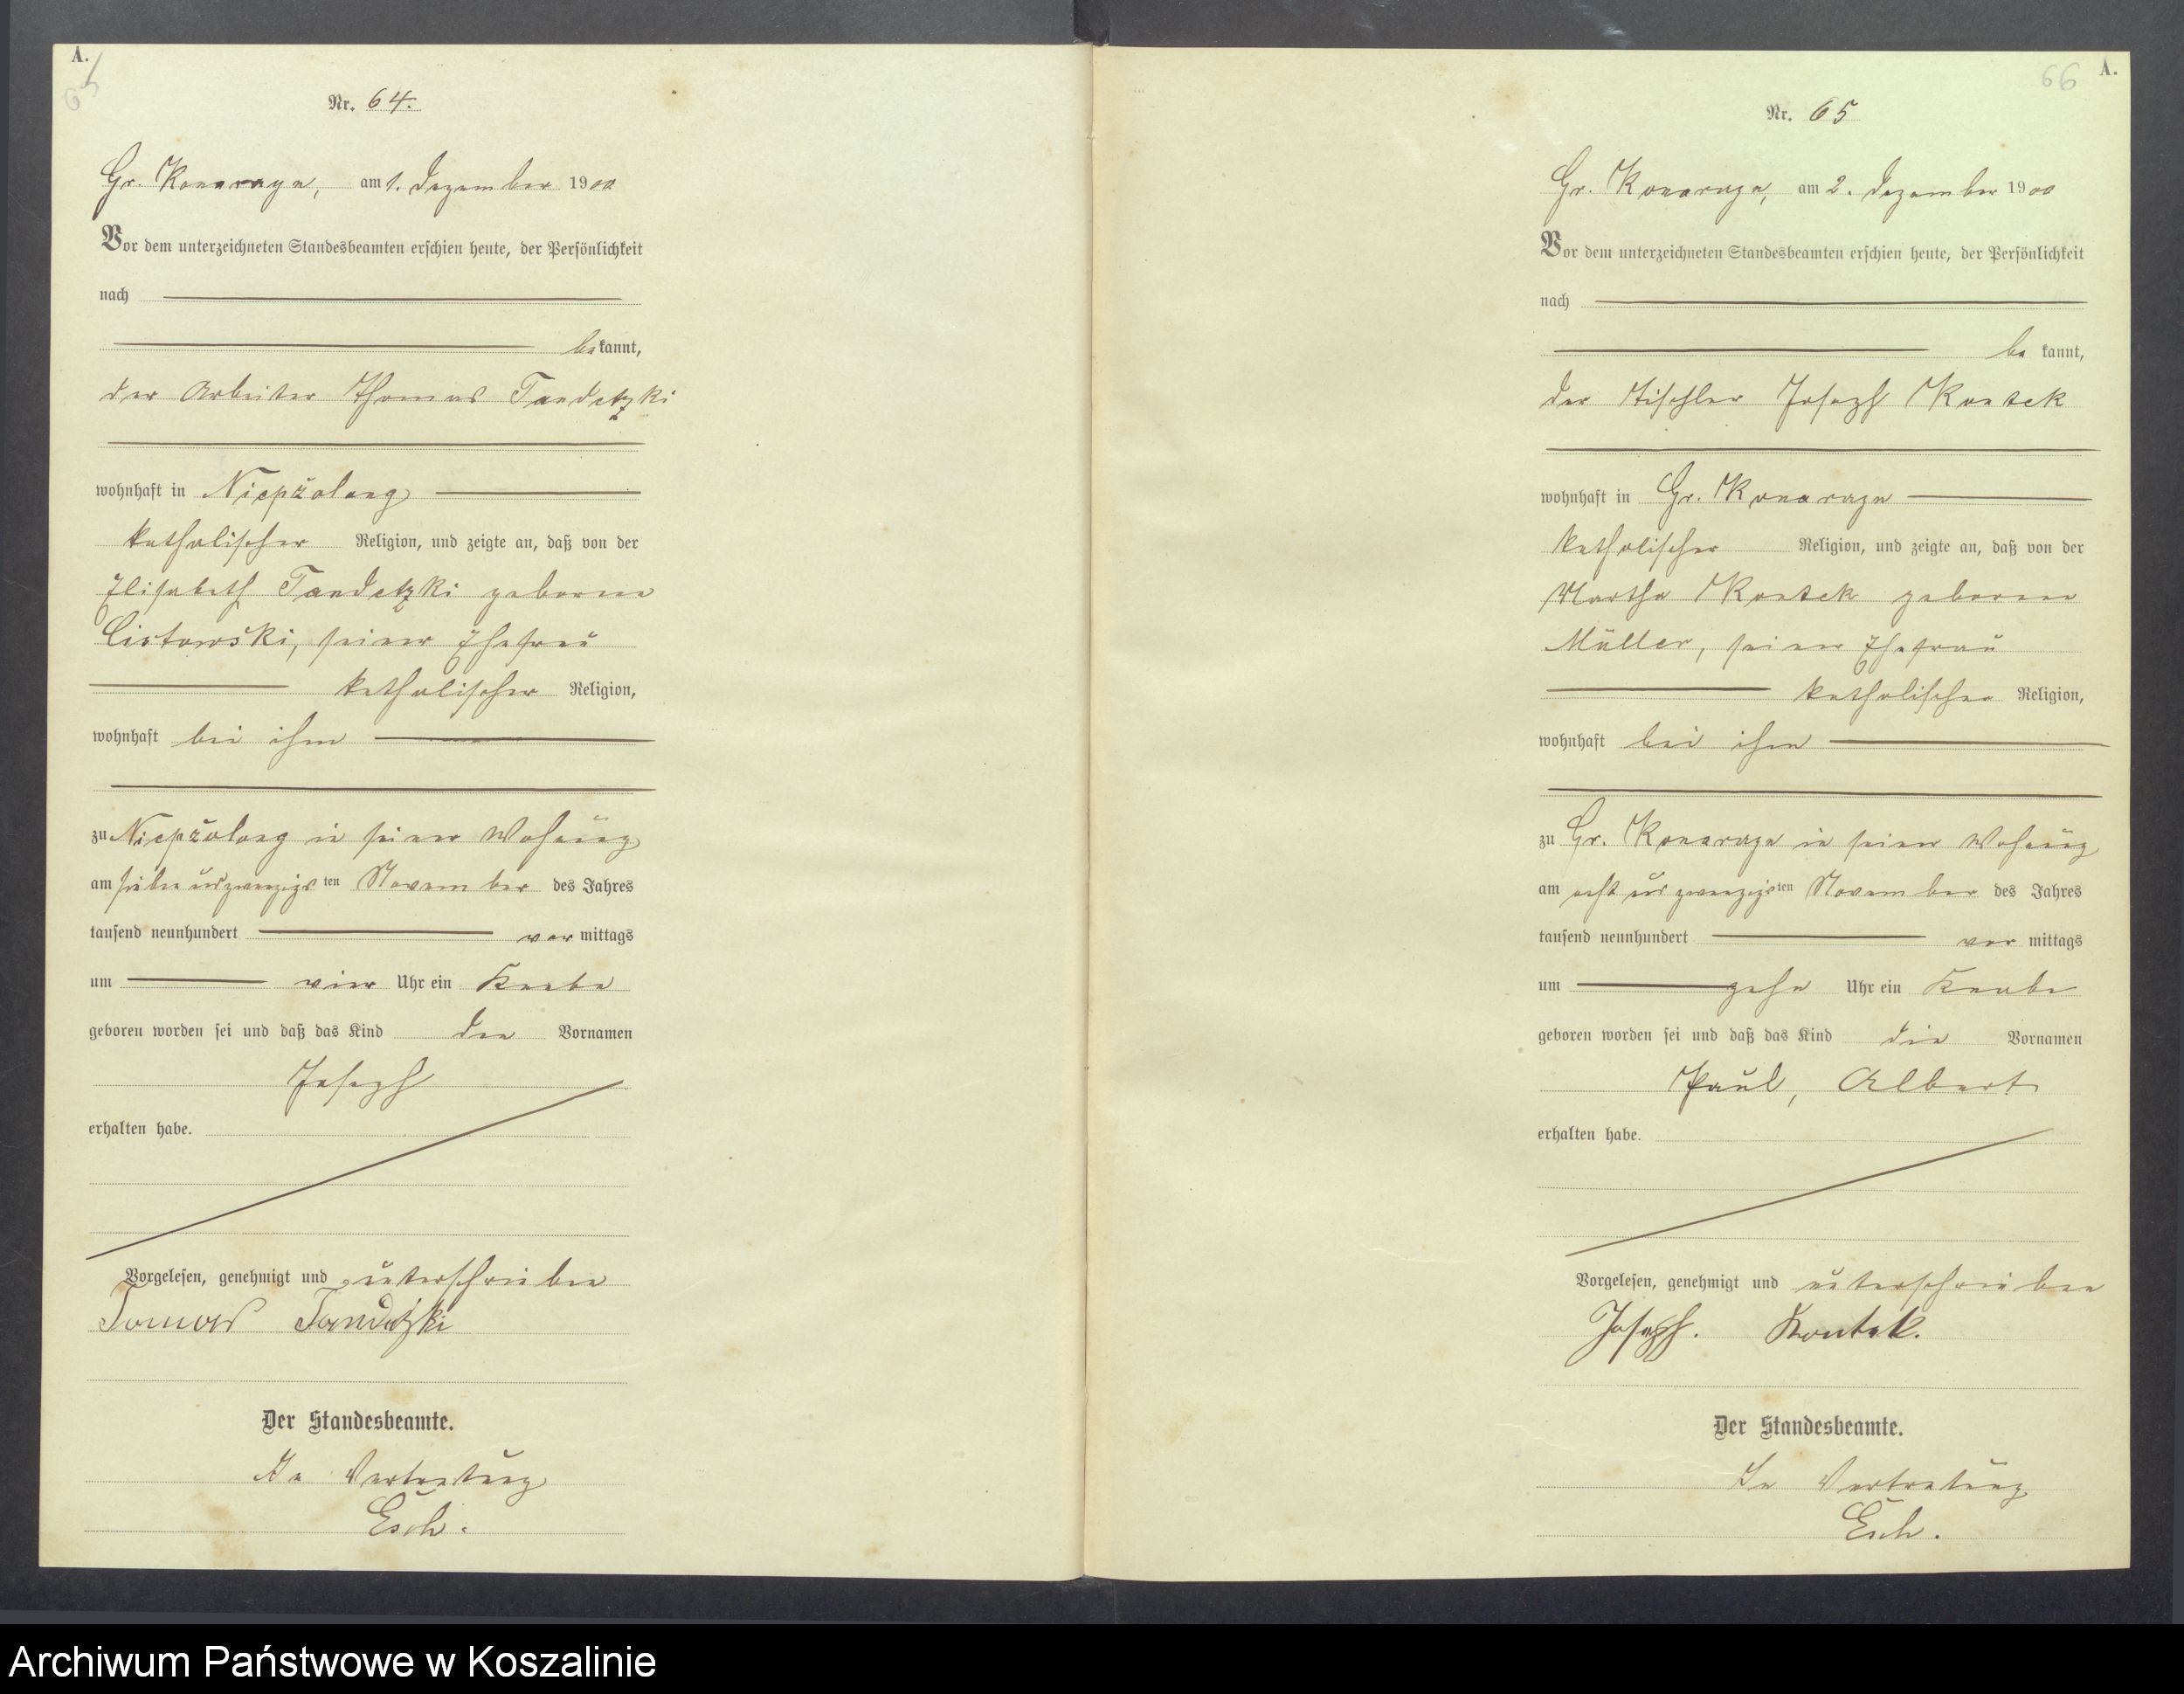 A.
65
Nr. 64.
Gr. Konarczyn, am 1. Dezember 1900
Vor dem unterzeichneten Standesbeamten erschien heute, der Persönlichkeit
nach
bekannt,
der Arbeiter Thomas Tandetzki
wohnhaft in Niepřolong
katholischer Religion, und zeigte an, daß von der
Elisabeth Tandetzki geborene
Listowski, seiner Ehefrau
katholischer Religion,
wohnhaft bei ihm
zu Niepřolong in seiner Wohnung
am sieben und zwanzigsten November des Jahres
tausend neunhundert vormittags
um vier Uhr ein Knabe
geboren worden sei und daß das Kind den Vornamen
Joseph
erhalten habe.
Vorgelesen, genehmigt und unterschrieben
Tomas Tandetzki
Der Standesbeamte.
In Vertretung
Esch.
66
A.
Nr. 65
Gr. Konarczyn, am 2. Dezember 1900
Vor dem unterzeichneten Standesbeamten erschien heute, der Persönlichkeit
nach
bekannt,
der Tischler Joseph Kontek
wohnhaft in Gr. Konarczyn
katholischer Religion, und zeigte an, daß von der
Martha Kontek geborene
Müller, seiner Ehefrau
katholischer Religion,
wohnhaft bei ihm
zu Gr. Konarczyn in seiner Wohnung
am acht und zwanzigsten November des Jahres
tausend neunhundert vormittags
um zehn Uhr ein Knabe
geboren worden sei und daß das Kind die Vornamen
Paul, Albert
erhalten habe.
Vorgelesen, genehmigt und unterschrieben
Joseph. Kontek.
Der Standesbeamte.
In Vertretung
Esch.
Archiwum Państwowe w Koszalinie